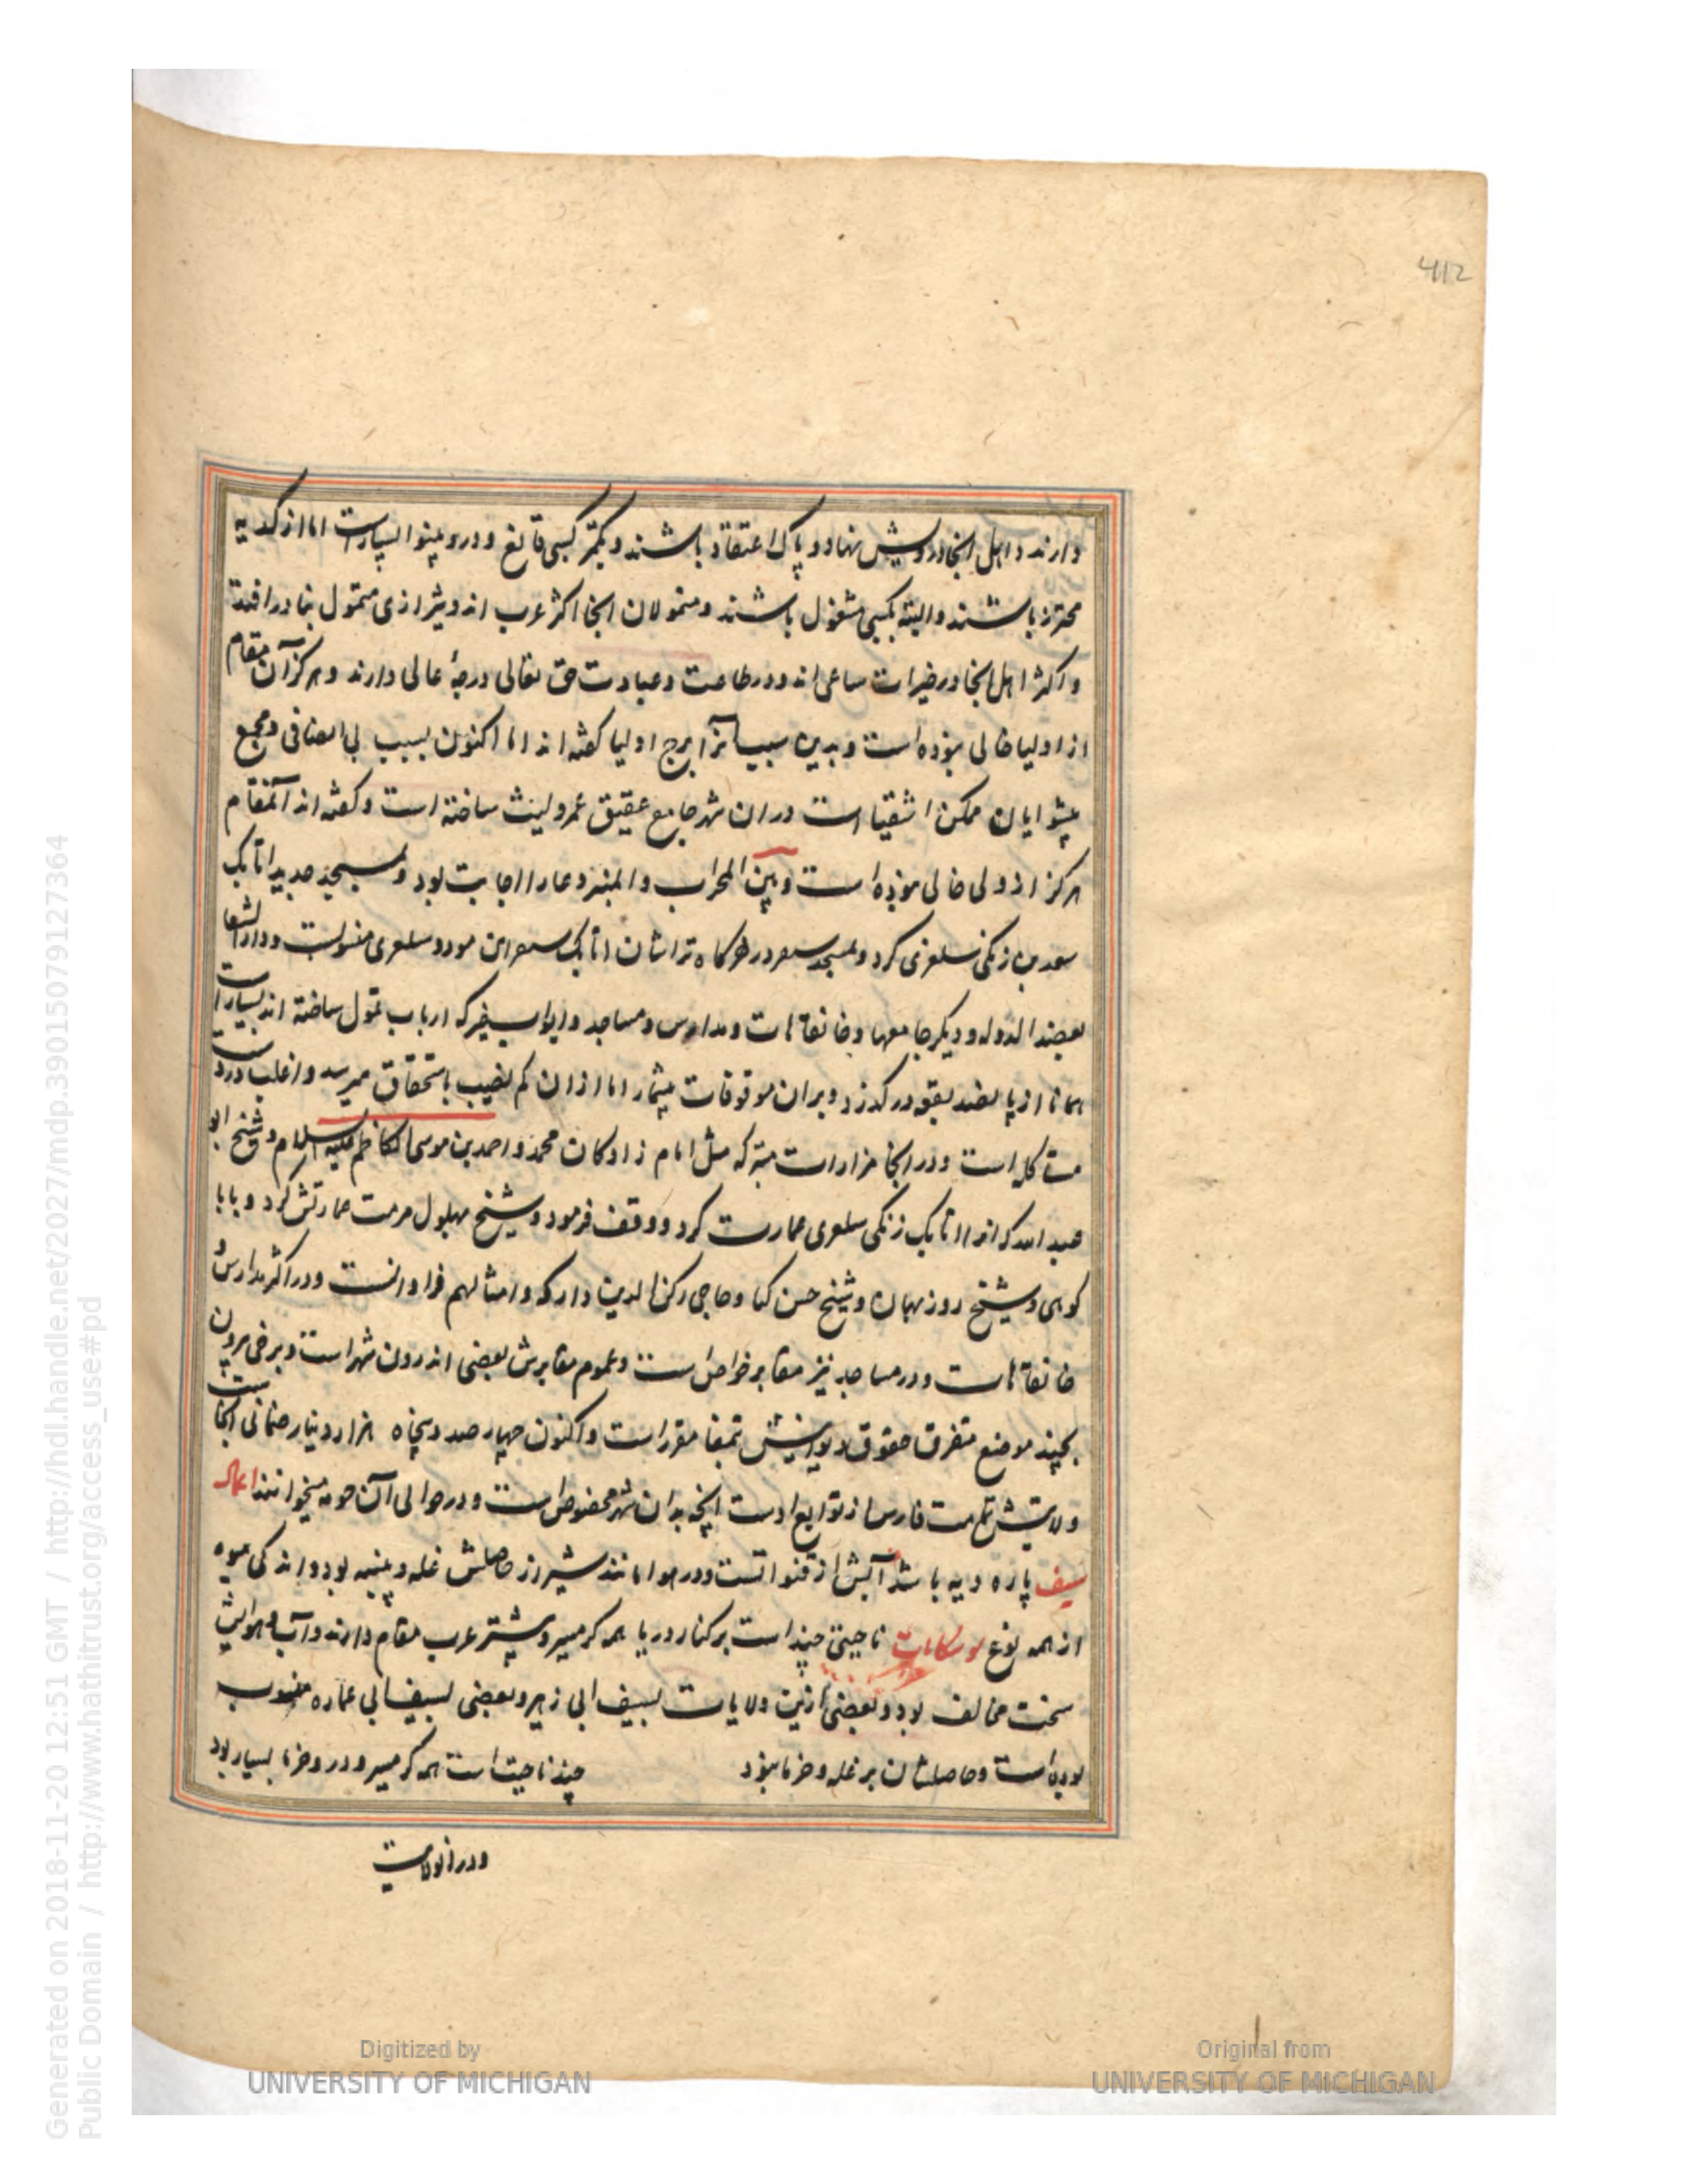 412
دارند و اهل آنجا درویش نهاد و پاک اعتقاد باشند و بکمتر کسبی قانع و در و بینوا بسیارست اما از کدیه
محترز باشند و البته بکسبی مشغول باشند و متمولان آنجا اکثر غرب اند و شیرازی متمول بنادر افتد
و اکثر اهل آنجا در خیرات ساعی اند و در طاعت و عبادت حق تعالی درجهٔ عالی دارند و هرگز آن مقام
از اولیا خالی نبوده است و بدین سبب آنرا برج اولیا گفته اند اما اکنون بسبب بی انصافی و مجمع
پیشوایان مکمن اشقیا است در آن شهر جامع عتیق عمرو لیث ساخته است و گفته اند آنمقام
هرگز از ولی خالی نبوده است و بین المحراب و المنبر دعا را اجابت بود و مسجد جدید اتابک
سعد بن زنگی سلغری کرد و مسجد سنقر در خرکاه تراشان اتابک سنقر ابن مودود سلغری منسوبست و دار الشفا
بعضد الدوله و دیگر جامعها و خانقاهات و مدارس و مساجد و ابواب خیر که ارباب تمول ساخته اند بسیار است
همانا از پانصد بقعه درگذرد و بران موقوفات بیشمار اما از ان کم نصیب باستحقاق میرسد و اغلب در دست
متاکله است و در آنجا مزارات متبرکه مثل امام زادگان محمد و احمد بن موسی الکاظم علیه السلام و شیخ ابو
عبد الله که انرا اتابک زنگی سلغری عمارت کرد و وقف فرمود و شیخ بهلول مرمت عمارتش کرد و بابا
کوهی و شیخ روزبهان و شیخ حسن کیا و حاجی رکن الدین و امثالهم فراوانست و در اکثر مدارس و
خانقاهات و در مساجد نیز مقابر خواص است و عموم مقابرش بعضی اندرون شهر است و برخی بیرون
بچند موضع متفرق حقوق دیوانیش بتمغا مقرر است و اکنون چهار صد و پنجاه هزار دینار ضمانی آنجاست
ولایتش تمامت فارس از توابع اوست آنچه بدان شهر مخصوص است و در حوالی آن حومه میخوانند اعمال
سیف پاره دیه باشد آبش از قنواتست و در هوا مانند شیراز حاصلش غله و پنبه بود و اندکی میوه
از همه نوع ناحیتی چند است بر کنار دریا همه گرمسیر و بیشتر عرب مقام دارند و آب و هوایش
سخت مخالف بود و بعضی ازین ولایات بسیف ابی زهیر و بعضی بسیف ابی عماره منسوب
بوده است و حاصلشان بر غله و خرما نبود چند ناحیت است همه گرمسیر و در و خرما بسیار بود
و در آن ولایت
Generated on 2018-11-20 12:51 GMT / http://hdl.handle.net/2027/mdp.39015079127364
Public Domain / http://www.hathitrust.org/access_use#pd
Digitized by
UNIVERSITY OF MICHIGAN
Original from
UNIVERSITY OF MICHIGAN